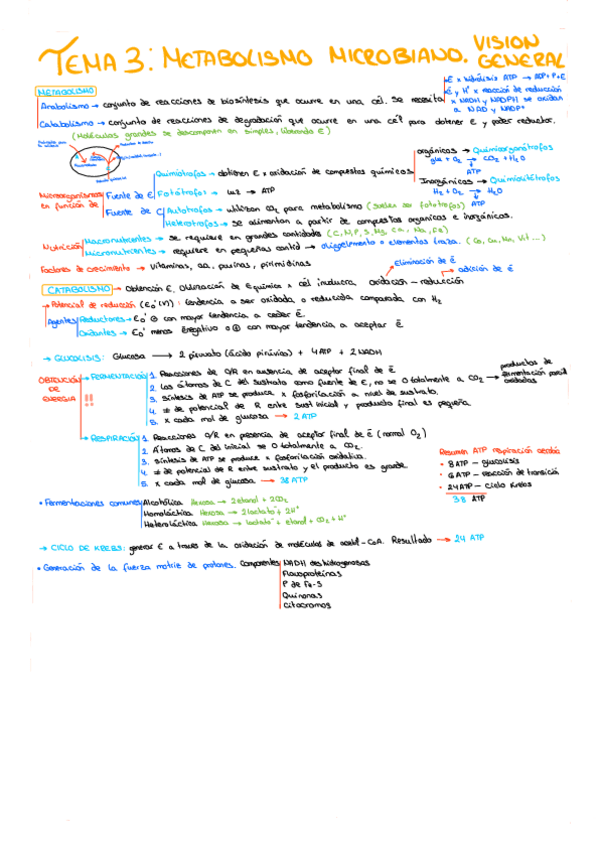 TEMA 3: METABOLISMO MICROBIANO. VISION GENERAL
METABOLISMO
Anabolismo → conjunto de reacciones de biosíntesis que ocurre en una cél. Se necesita
E x hidrólisis ATP → ADP + Pi + E
ē y H⁺ x reacción de reducción
x NADH y NADPH se oxidan
a NAD y NADP⁺
Catabolismo → conjunto de reacciones de degradación que ocurre en una célª para obtener E y poder reductor.
(Moléculas grandes se descomponen en simples, liberando E)
Microorganismos en función de
Fuente de E
Quimiótrofos → obtienen E x oxidación de compuestos químicos
orgánicos → Quimiorganótrofos
glu + O₂ → CO₂ + H₂O
ATP
Inorgánicos → Quimiolitótrofos
H₂ + O₂ → H₂O
ATP
Fotótrofos → luz → ATP
Fuente de C
Autótrofos → utilizan CO₂ para metabolismo (suelen ser fotótrofos)
Heterótrofos → se alimentan a partir de compuestos orgánicos e inorgánicos.
Nutrición
Macronutrientes → se requiere en grandes cantidades (C, N, P, S, Mg, Ca, Na, Fe)
Micronutrientes → requiere en pequeñas cantid → oligoelemento o elementos traza. (Co, Cu, Mn, Vit...)
Factores de crecimiento → Vitaminas, aa, purinas, pirimidinas
CATABOLISMO → Obtención E. Obtención de E química x cél involucra oxidación - reducción
Eliminación de ē
adición de ē
→ Potencial de reducción (E₀'(V)): tendencia a ser oxidada o reducida comparada con H₂
Agentes
Reductores → E₀' ⊖ con mayor tendencia a ceder ē.
Oxidantes → E₀' menos negativo o ⊕ con mayor tendencia a aceptar ē
→ GLUCOLISIS: Glucosa → 2 piruvato (ácido pirúvico) + 4 ATP + 2 NADH
OBTENCIÓN DE ENERGIA !!
→ FERMENTACIÓN
1. Reacciones de O/R en ausencia de aceptor final de ē
2. Los átomos de C del sustrato como fuente de E, no se O totalmente a CO₂ → productos de fermentación parcial oxidados
3. Síntesis de ATP se produce x fosforilación a nivel de sustrato.
4. ≠ de potencial de R entre sust inicial y producto final es pequeña.
5. x cada mol de glucosa → 2 ATP
→ RESPIRACIÓN
1. Reacciones O/R en presencia de aceptor final de ē (normal O₂)
2. Átomos de C del inicial se O totalmente a CO₂.
3. síntesis de ATP se produce x fosforilación oxidativa.
4. ≠ de potencial de R entre sustrato y el producto es grande.
5. x cada mol de glucosa → 38 ATP
Resumen ATP respiración aerobia
• 8 ATP - glucolisis
• 6 ATP - reacción de transición
• 24 ATP - Ciclo Krebs
38 ATP
• Fermentaciones comunes
Alcohólica Hexosa → 2 etanol + 2 CO₂
Homoláctica Hexosa → 2 lactato⁻ + 2H⁺
Heteroláctica Hexosa → lactato⁻ + etanol + CO₂ + H⁺
→ CICLO DE KREBS: generar E a traves de la oxidación de moléculas de acetil-CoA. Resultado → 24 ATP
• Generación de la fuerza motriz de protones. Componentes
NADH deshidrogenasas
Flavoproteínas
P de Fe-S
Quinonas
Citocromos